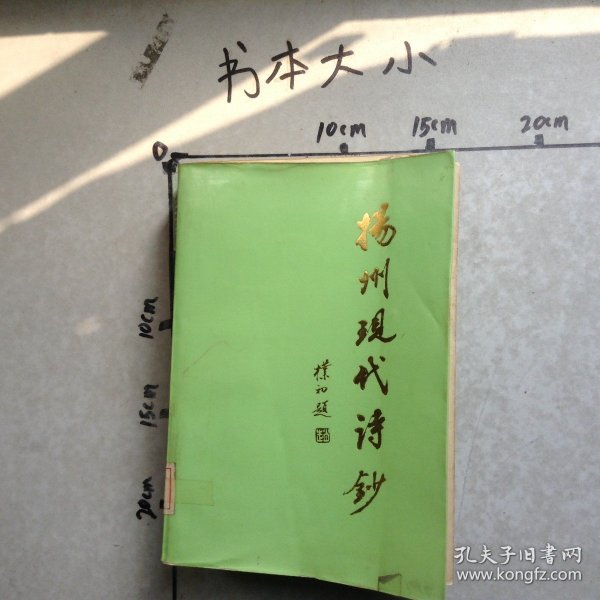 书本大小
0
10cm
15cm
20cm
10cm
15cm
20cm
揚州現代詩鈔
樸初題
孔夫子旧书网
www.kongfz.com